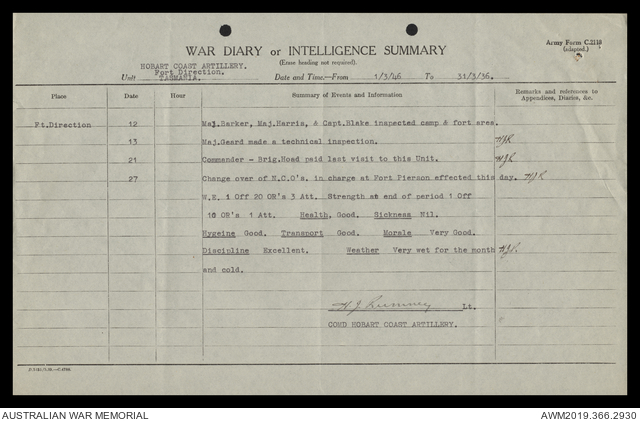 Army Form C.2118
(Adapted.)
WAR DIARY or INTELLIGENCE SUMMARY
(Erase heading not required).
HOBART COAST ARTILLERY.
Fort Direction.
Unit TASMANIA. Date and Time:—From 1/3/46 To 31/3/36.
Place Date Hour Summary of Events and Information Remarks and references to Appendices, Diaries, &c.
Ft.Direction 12 Maj.Barker, Maj.Harris, & Capt.Blake inspected camp & fort area.
13 Maj.Geard made a technical inspection. HJR
21 Commander - Brig.Hoad paid last visit to this Unit. HJR
27 Change over of N.C.O's. in charge at Fort Pierson effected this day. HJR
W.E. 1 Off 20 OR's 3 Att. Strength at end of period 1 Off
10 OR's 1 Att. Health. Good. Sickness Nil.
Hygeine Good. Transport Good. Morale Very Good.
Discipline Excellent. Weather Very wet for the month HJR.
and cold.
H. J. Rumney Lt.
COMD HOBART COAST ARTILLERY.
AUSTRALIAN WAR MEMORIAL AWM2019.366.2930